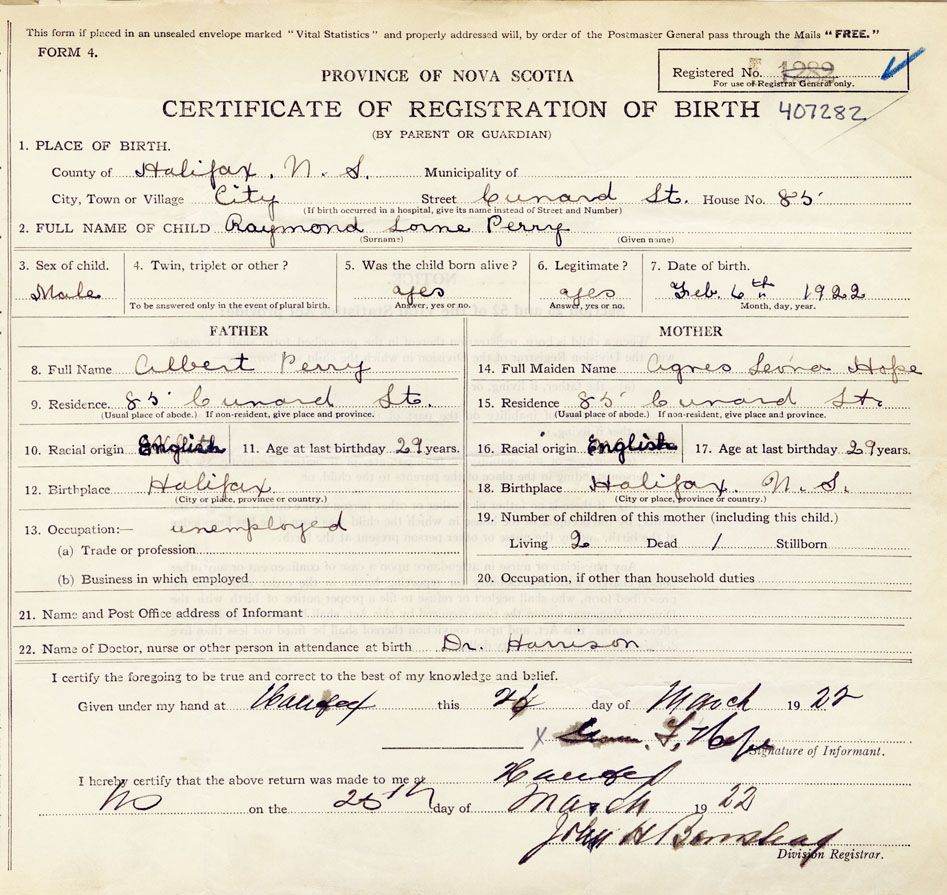 This form if placed in an unsealed envelope marked "Vital Statistics" and properly addressed will, by order of the Postmaster General pass through the Mails "FREE."
FORM 4.
Registered No. 1282
For use of Registrar General only.
PROVINCE OF NOVA SCOTIA
CERTIFICATE OF REGISTRATION OF BIRTH 407282
(BY PARENT OR GUARDIAN)
1. PLACE OF BIRTH.
County of Halifax, N. S. Municipality of
City, Town or Village City Street Cunard St. House No. 85
(If birth occurred in a hospital, give its name instead of Street and Number)
2. FULL NAME OF CHILD Raymond Lorne Perry
(Surname) (Given name)
3. Sex of child. 4. Twin, triplet or other? 5. Was the child born alive? 6. Legitimate? 7. Date of birth.
Male yes yes Feb. 6th 1922
To be answered only in the event of plural birth. Answer, yes or no. Answer, yes or no. Month, day, year.
FATHER MOTHER
8. Full Name Albert Perry 14. Full Maiden Name Agnes Leona Hope
9. Residence. 85 Cunard St. 15. Residence 85 Cunard St.
(Usual place of abode.) If non-resident, give place and province. (Usual place of abode.) If non-resident, give place and province.
10. Racial origin English 11. Age at last birthday 29 years. 16. Racial origin English 17. Age at last birthday 29 years.
12. Birthplace Halifax 18. Birthplace Halifax. N. S.
(City or place, province or country.) (City or place, province or country.)
13. Occupation:— unemployed 19. Number of children of this mother (including this child.)
(a) Trade or profession Living 2 Dead 1 Stillborn
(b) Business in which employed 20. Occupation, if other than household duties
21. Name and Post Office address of Informant
22. Name of Doctor, nurse or other person in attendance at birth Dr. Harrison
I certify the foregoing to be true and correct to the best of my knowledge and belief.
Given under my hand at Halifax this day of March 1922
X Hope
Signature of Informant.
I hereby certify that the above return was made to me at Halifax
NS on the 25th day of March 1922
John H
Division Registrar.